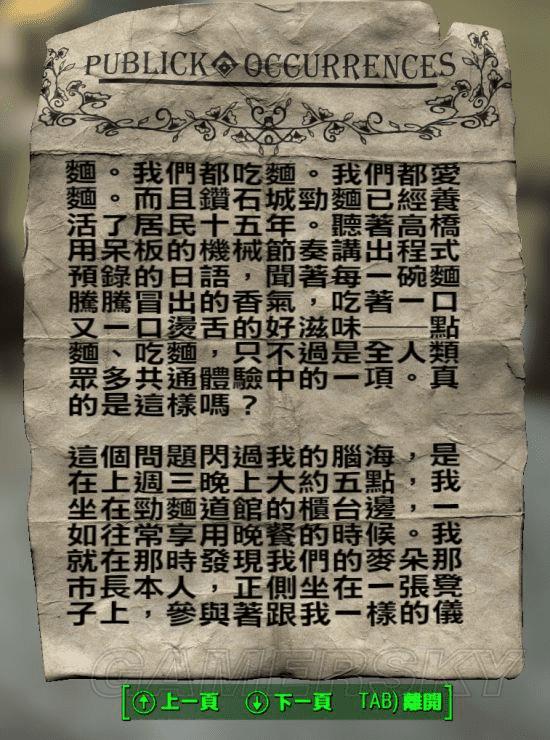 PUBLICK OCCURRENCES
麵。我們都吃麵。我們都愛
麵。而且鑽石城勁麵已經養
活了居民十五年。聽著高橋
用呆板的機械節奏講出程式
預錄的日語，聞著每一碗麵
騰騰冒出的香氣，吃著一口
又一口燙舌的好滋味——點
麵、吃麵，只不過是全人類
眾多共通體驗中的一項。真
的是這樣嗎？
這個問題閃過我的腦海，是
在上週三晚上大約五點，我
坐在勁麵道館的櫃台邊，一
如往常享用晚餐的時候。我
就在那時發現我們的麥朵那
市長本人，正側坐在一張凳
子上，參與著跟我一樣的儀
GAMERSKY
上一頁 下一頁 TAB) 離開